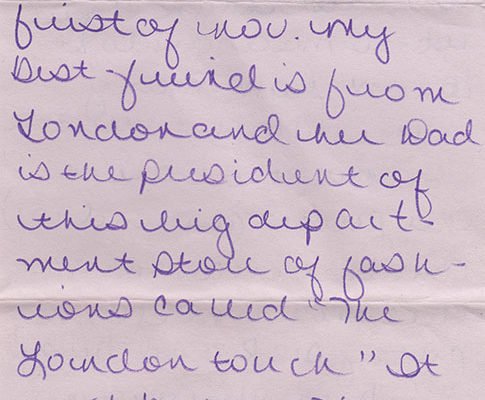 first of nov. my
best friend is from
London and her Dad
is the president of
this big depart-
ment store of fash-
ions called "The
London touch" It